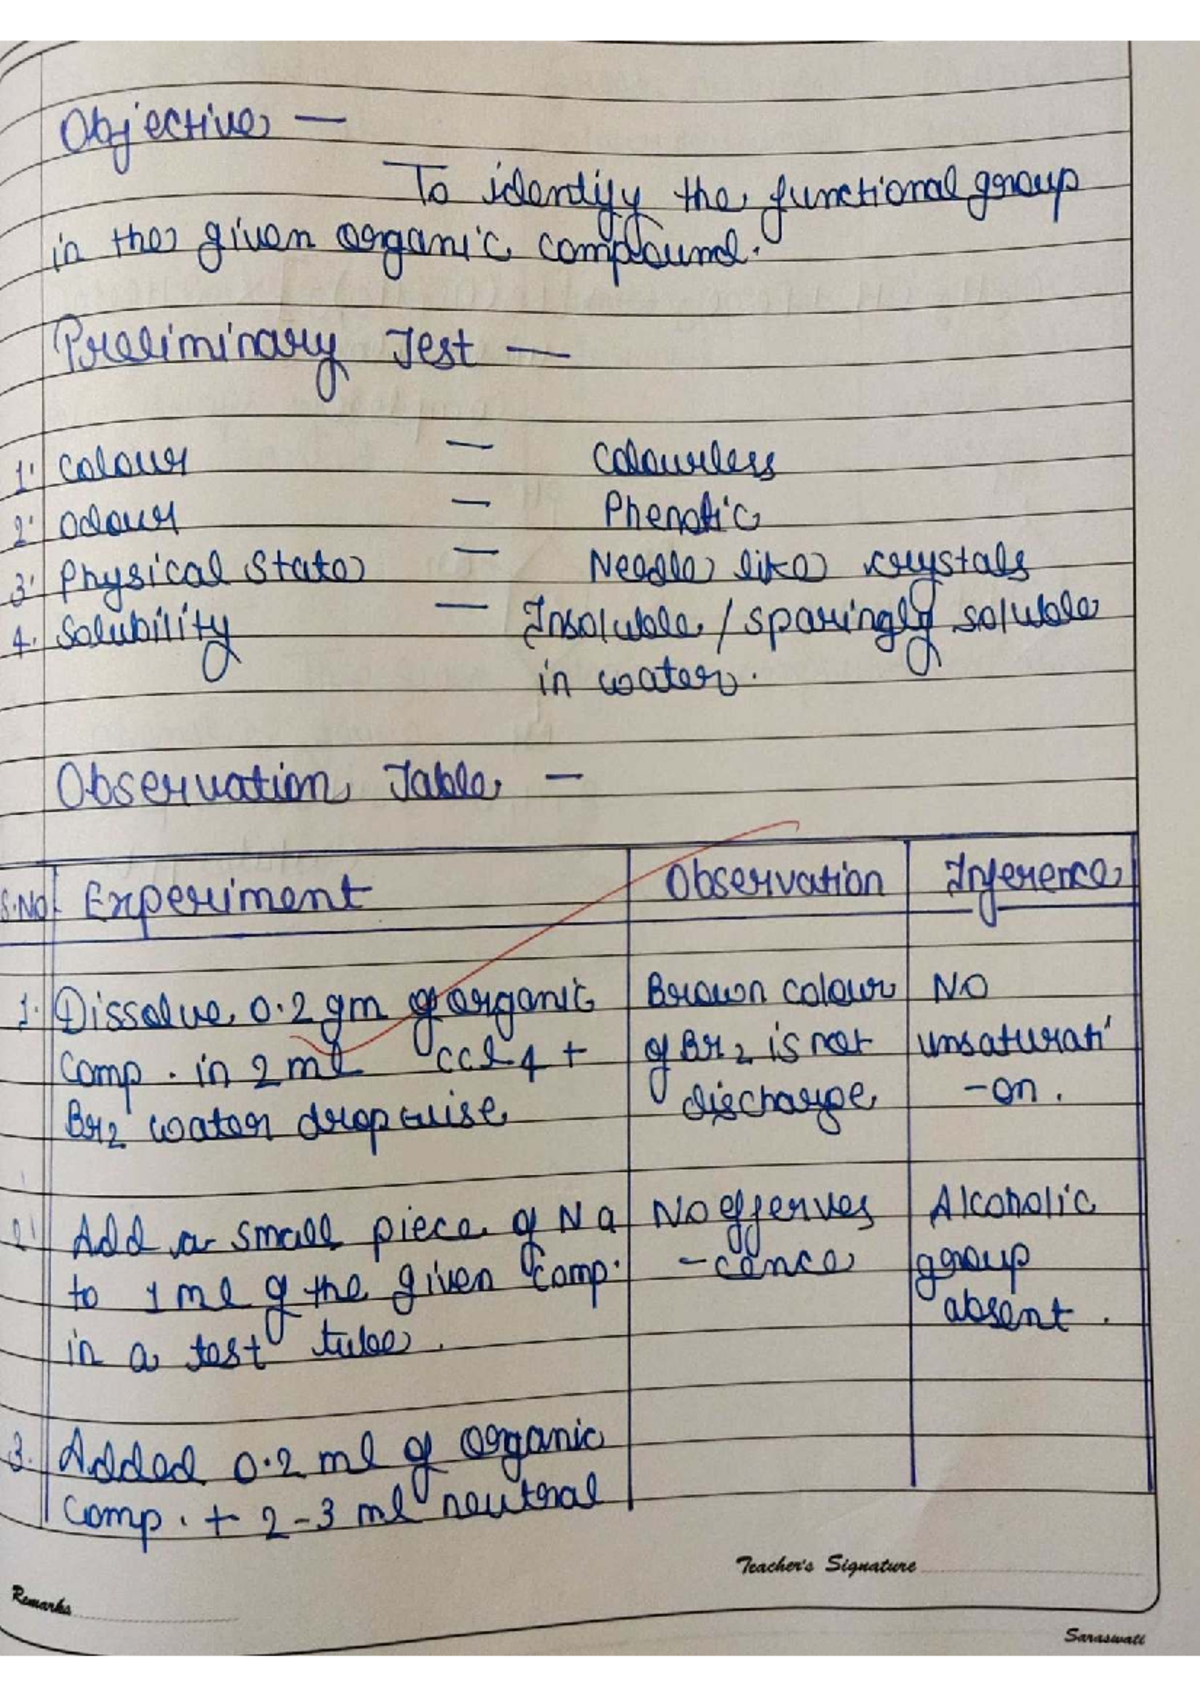 Objective —
To identify the functional group
in the given organic compound.
Preliminary Test —
1. Colour — Colourless
2. Odour — Phenolic
3. Physical State — Needle like crystals
4. Solubility — Insoluble / sparingly soluble
in water.
Observation Table —
S.No. Experiment Observation Inference
1. Dissolve 0.2 gm of organic Brown colour No
comp. in 2 ml CCl4 + of Br2 is not unsaturati
Br2 water dropwise discharge -on.
2. Add a small piece of Na No efferves Alcoholic
to 1 ml of the given comp. -cence group
in a test tube. absent.
3. Added 0.2 ml of organic
comp. + 2-3 ml neutral
Teacher's Signature
Remarks
Saraswati